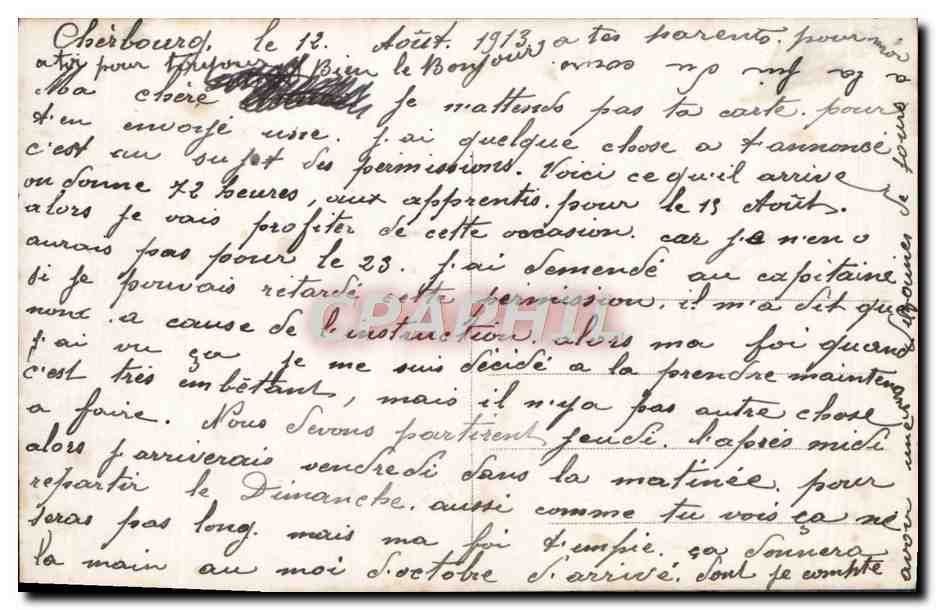 Cherbourg, le 12. Août. 1913
Ma chère Je n'attends pas ta carte. pour
t'en envoyé une. J'ai quelque chose a t'annoncé
c'est au sujet des permissions. Voici ce qu'il arrive
on donne 72 heures, aux apprentis. pour le 15 Août.
alors je vais profiter de cette occasion. car je n'en
aurais pas pour le 23. J'ai demendé au capitaine
si je pouvais retardé cette permission, il m'a dit que
non. a cause de l'instruction. alors ma foi quand
j'ai vu ça je me suis décidé a la prendre maintenant
c'est très embêtant, mais il n'y a pas autre chose
a faire. Nous devons partirent jeudi. l'après midi
alors j'arriverais vendredi dans la matinée. pour
repartir le Dimanche. aussi comme tu vois ça ne
seras pas long. mais ma foi t'empie. ça donnera
la main au moi d'octobre d'arrivé. dont je compte
avoir une de jours a
a toi pour toujours Bien le Bonjour a tes parents. pour moi
CPARPHIL